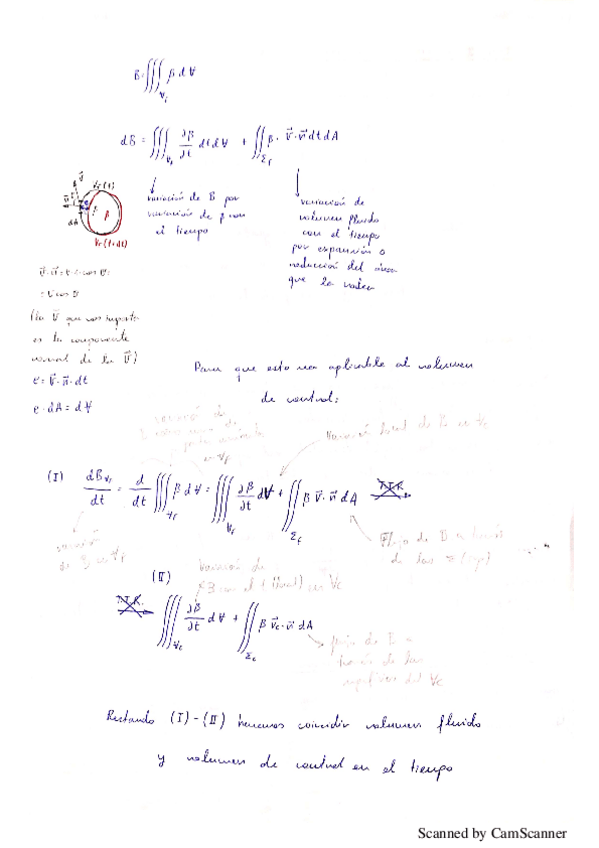 B = ∭_Vf β dV
dB = ∭_Vf ∂β/∂t dt dV + ∬_Σf β · v⃗·n⃗ dt dA
variación de B por
variación de β con
el tiempo
variación de
volumen fluido
con el tiempo
por expansión o
reducción del área
que lo rodea
Vf(t)
dA
Vf(t+dt)
v⃗·n⃗ = v·1·cos θ =
= v cos θ
(la v⃗ que nos importa
es la componente
normal de la v⃗)
e = v⃗·n⃗·dt
e·dA = dV
Para que esto sea aplicable al volumen
de control:
variación de
en Vf
Variación local de B en Vc
(I) dB_Vf/dt = d/dt ∭_Vf β dV = ∭_Vf ∂β/∂t dV + ∬_Σf β v⃗·n⃗ dA
T.T.R.
variación
de B en Vf
Flujo de B a través
de las
(II)
Variación de
T.T.R.
∭_Vc ∂β/∂t dV + ∬_Σc β v⃗c·n⃗ dA
flujo de B a
través de las
superficies del Vc
Restando (I)-(II) hacemos coincidir volumen fluido
y volumen de control en el tiempo
Scanned by CamScanner